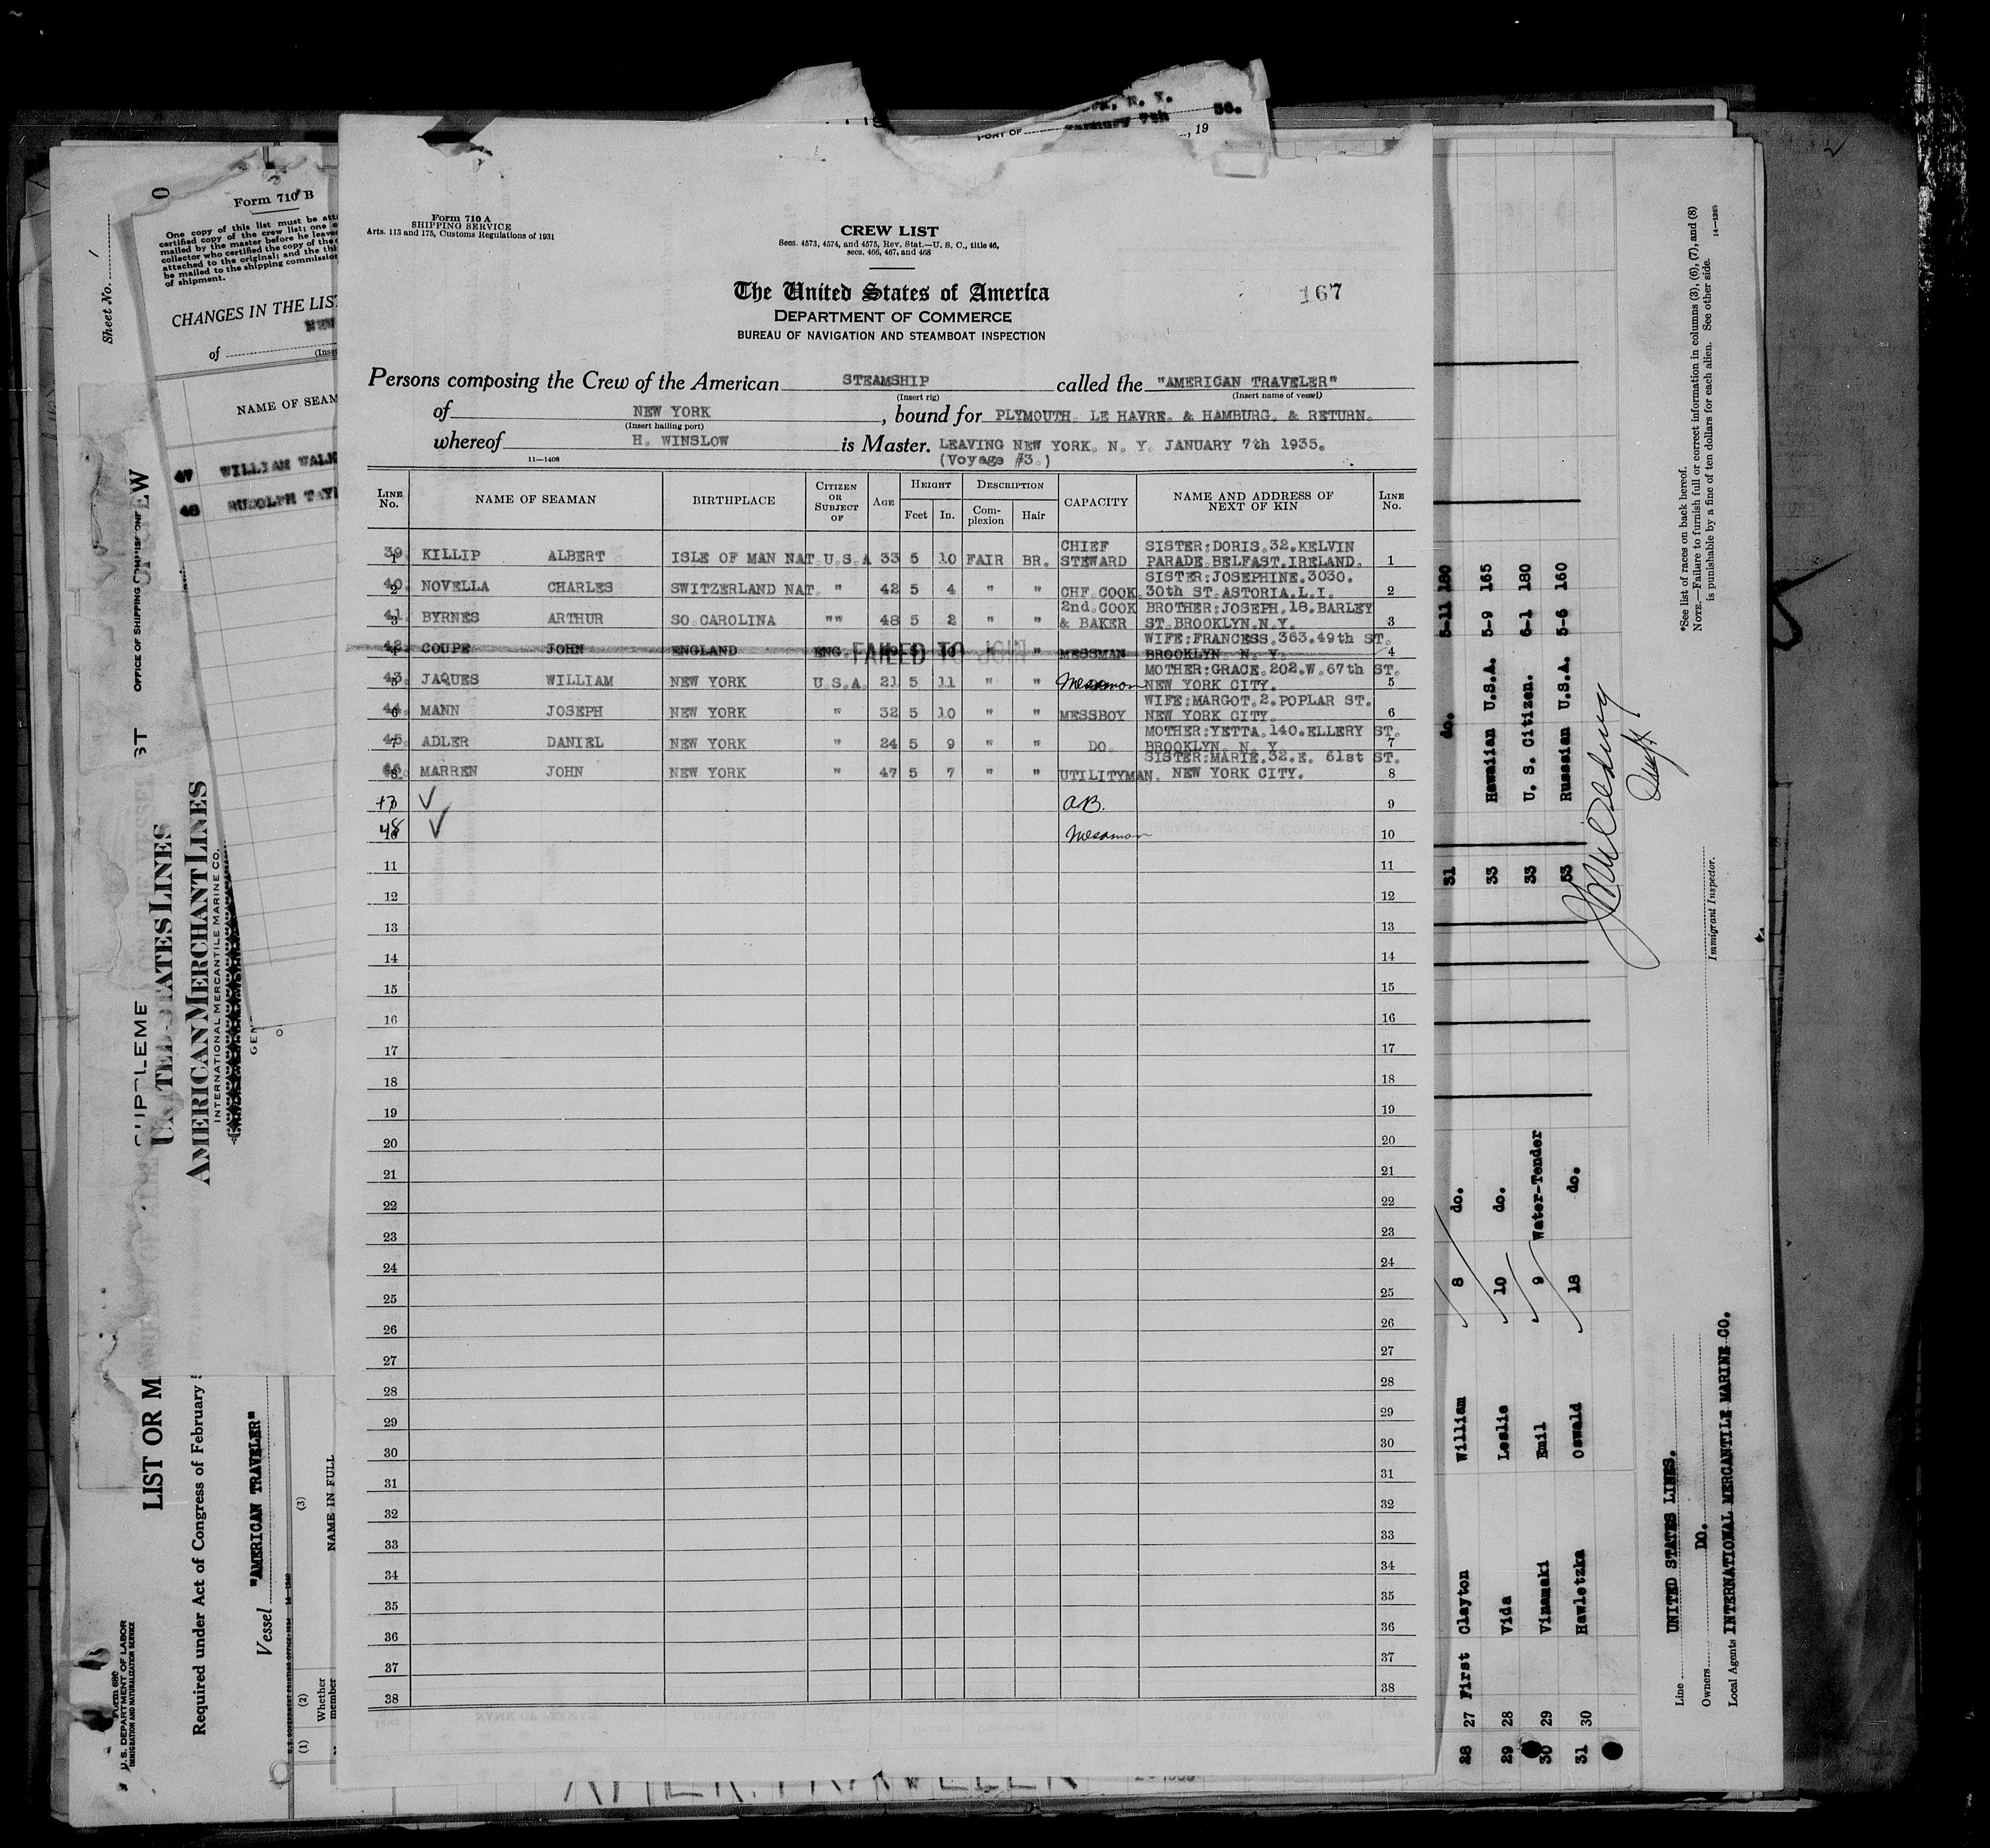 PORT OF
, N. Y.
January 7th
, 19
36.
Form 710 A
SHIPPING SERVICE
Arts. 113 and 175, Customs Regulations of 1931
CREW LIST
Secs. 4573, 4574, and 4575, Rev. Stat.—U. S. C., title 46,
secs. 466, 467, and 468
The United States of America
DEPARTMENT OF COMMERCE
BUREAU OF NAVIGATION AND STEAMBOAT INSPECTION
167
Persons composing the Crew of the American STEAMSHIP called the "AMERICAN TRAVELER"
(Insert rig) (Insert name of vessel)
of NEW YORK, bound for PLYMOUTH. LE HAVRE. & HAMBURG. & RETURN.
(Insert hailing port)
whereof H. WINSLOW is Master. LEAVING NEW YORK. N. Y. JANUARY 7th 1935.
11—1408 (Voyage #3.)
LINE No. NAME OF SEAMAN BIRTHPLACE CITIZEN OR SUBJECT OF AGE HEIGHT Feet In. DESCRIPTION Complexion Hair CAPACITY NAME AND ADDRESS OF NEXT OF KIN LINE No.
39. KILLIP ALBERT ISLE OF MAN NAT. U.S.A 33 5 10 FAIR BR. CHIEF STEWARD SISTER:DORIS.32.KELVIN PARADE.BELFAST.IRELAND. 1
40. NOVELLA CHARLES SWITZERLAND NAT. " 42 5 4 " " CHF.COOK. SISTER:JOSEPHINE.3030. 30th ST.ASTORIA.L.I. 2
41. BYRNES ARTHUR SO.CAROLINA "" 48 5 2 " " 2nd.COOK & BAKER BROTHER:JOSEPH.18.BARLEY ST.BROOKLYN.N.Y. 3
42. COUPE JOHN ENGLAND ENG. FAILED TO JOIN " MESSMAN WIFE:FRANCESS.363.49th ST. BROOKLYN. N. Y. 4
43. JAQUES WILLIAM NEW YORK U.S.A. 21 5 11 " " Messman MOTHER:GRACE.202.W.67th ST. NEW YORK CITY. 5
44. MANN JOSEPH NEW YORK " 32 5 10 " " MESSBOY WIFE:MARGOT.2.POPLAR ST. NEW YORK CITY. 6
45. ADLER DANIEL NEW YORK " 24 5 9 " " DO. MOTHER:YETTA.140.ELLERY ST. BROOKLYN. N. Y. 7
46. MARREN JOHN NEW YORK " 47 5 7 " " UTILITYMAN. SISTER:MARIE.32.E. 61st ST. NEW YORK CITY. 8
47 A.B. 9
48 Messman 10
11 11
12 12
13 13
14 14
15 15
16 16
17 17
18 18
19 19
20 20
21 21
22 22
23 23
24 24
25 25
26 26
27 27
28 28
29 29
30 30
31 31
32 32
33 33
34 34
35 35
36 36
37 37
38 38
Sheet No.
Form 710 B
One copy of this list must be
certified copy of the crew list; one
mailed by the master before he
collector who certified the copy of the
attached to the original; and the
be mailed to the shipping
of shipment.
CHANGES IN THE
of
NAME OF
47 WILLIAM
48 RUDOLPH
OFFICE OF SHIPPING
UNITED STATES LINES
AMERICAN MERCHANT LINES
INTERNATIONAL MERCANTILE MARINE CO.
LIST OR
Required under Act of Congress of February
Vessel "AMERICAN TRAVELER"
(1) (2) (3)
Whether
NAME IN FULL
U. S. DEPARTMENT OF LABOR
IMMIGRATION AND NATURALIZATION SERVICE
28 27 First Clayton William 8 do. 31 do. 5-11 180
29 28 Vida Leslie 10 do. 33 Hawaiian U.S.A. 5-9 165
30 29 Vinamaki Emil 9 Water-Tender 33 U. S. Citizen. 6-1 180
31 30 Hawletzka Oswald 18 do. 53 Russian U.S.A. 5-6 160
Line UNITED STATES LINES.
Owners DO.
Local Agents INTERNATIONAL MERCANTILE MARINE CO.
Immigrant Inspector.
*See list of races on back hereof.
NOTE.—Failure to furnish full or correct information in columns (3), (6), (7), and (8)
is punishable by a fine of ten dollars for each alien. See other side.
14—1269